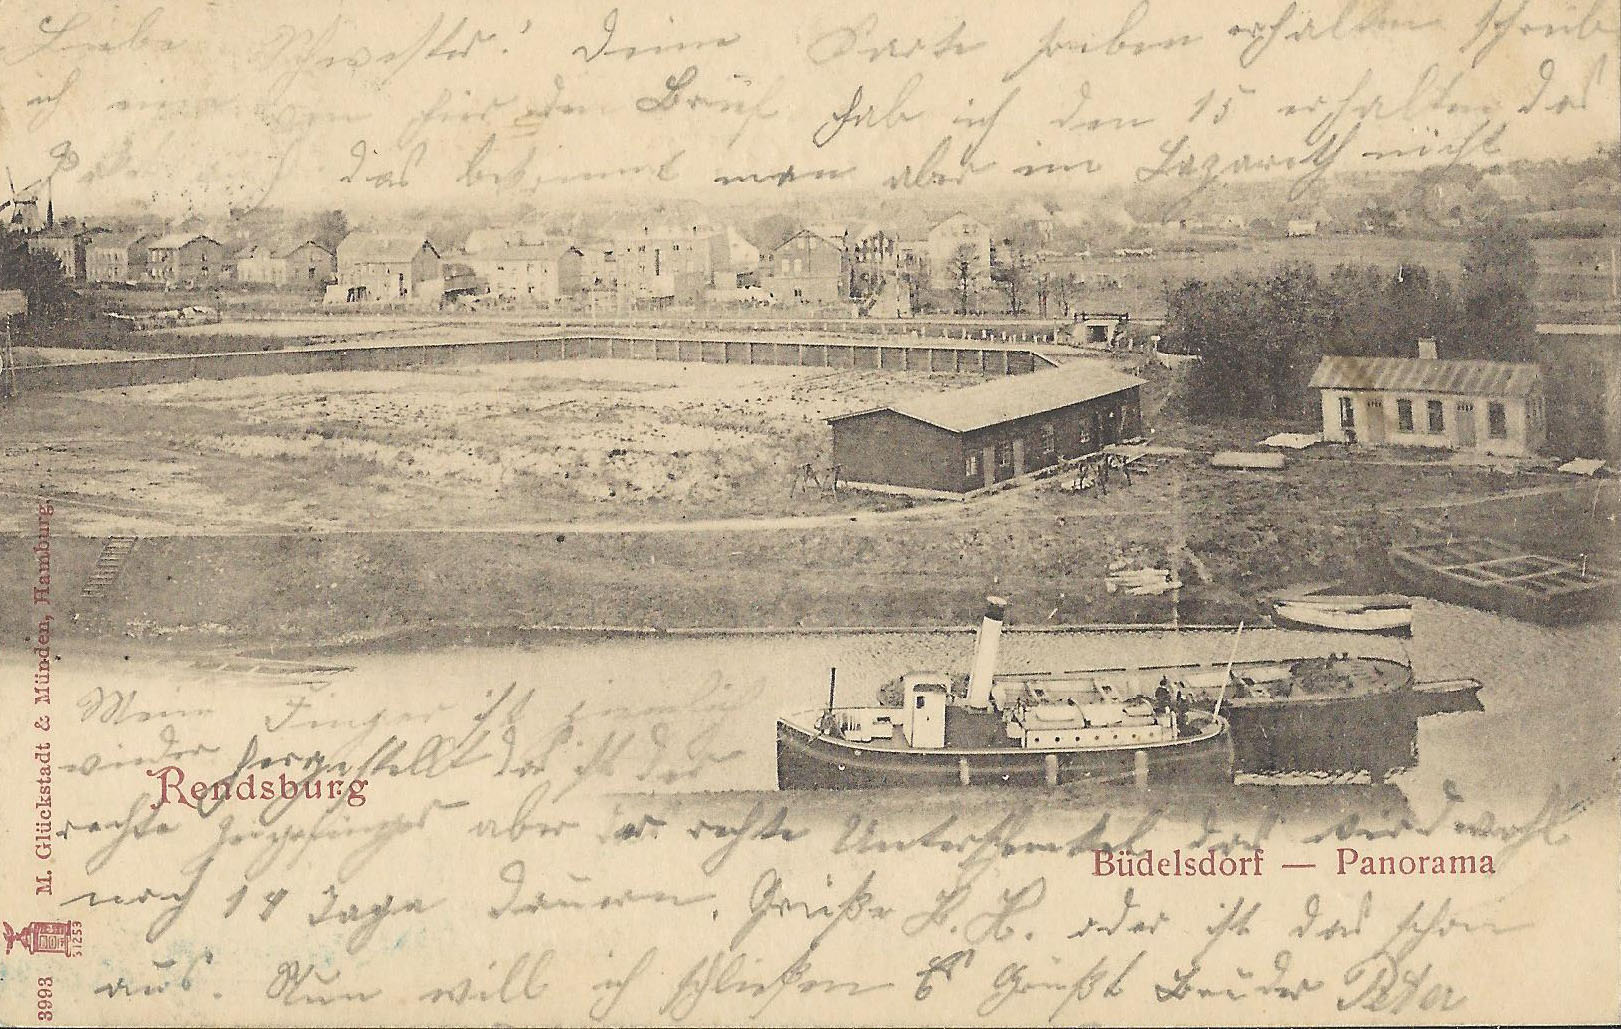 Liebe Schwester! Deine Karte haben erhalten schreib
ich für den Brief hab ich den 15 erhalten das
Paket auch das bekommt man aber im Lazareth nicht
Mein Finger ist ziemlich
wieder hergestellt das ist der
rechte Zeigefinger aber der rechte Unterschenkel das wird wohl
noch 14 Tage dauern. Grüße H. H. oder ist das schon
aus. Nun will ich schließen Es Grüßt Bruder Peter
Rendsburg
Büdelsdorf — Panorama
M. Glückstadt & Münden, Hamburg.
51253
3993